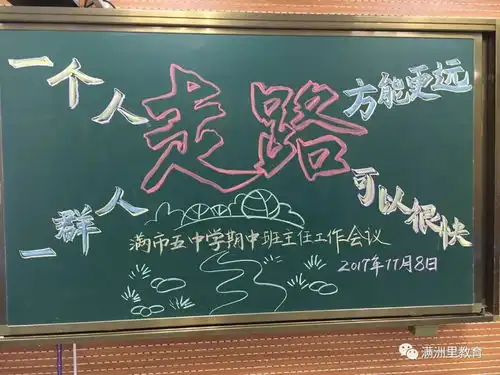 一个人
走路
方能更远
一群人
可以很快
满市五中学期中班主任工作会议
2017年11月8日
满洲里教育